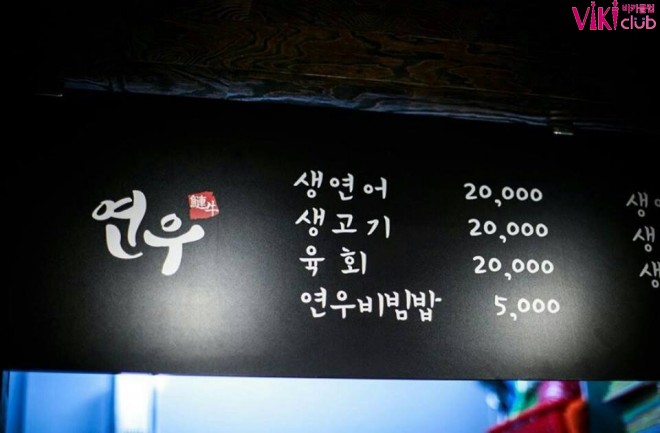 VIKI 비키클럽
club
연우
鰱牛
생연어 20,000
생고기 20,000
육회 20,000
연우비빔밥 5,000
생
생
생